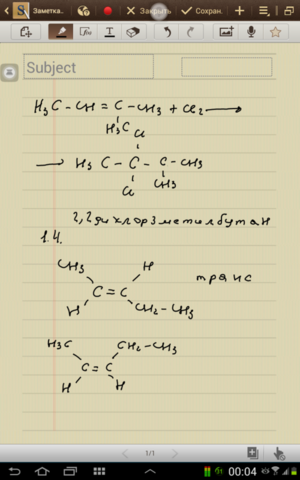 Заметка.
Закрыть
Сохран.
Subject
H₃C – CH = C – CH₃ + Cl₂ →
H₃C Cl
→ H₃C – C – C – CH₃
Cl CH₃
2,2 дихлор 3 метилбутан
1.4.
CH₃ H
C = C транс
H CH₂ – CH₃
H₃C CH₂ – CH₃
C = C
H H
1/1
00:04